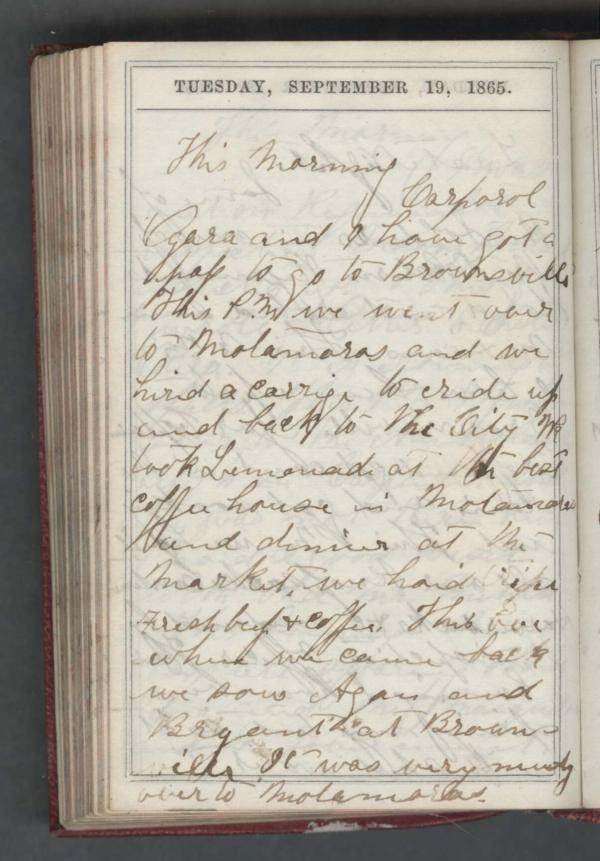 TUESDAY, SEPTEMBER 19, 1865.
This Morning
Corporol
and I have got a
pass to go to Brownsville
This P.M we went over
to Motamoros and we
hird a carrige to ride up
and back to the City We
took Lemonade at the best
coffee house in Motamoros
and dinner at the
Market, we had
Fresh beef & coffee. This Eve
when we came back
we sow and
Bryant at Browns-
ville It was very mudy
over to Motamoros.